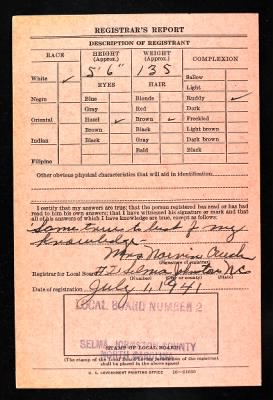 REGISTRAR'S REPORT
DESCRIPTION OF REGISTRANT
RACE HEIGHT (Approx.) WEIGHT (Approx.) COMPLEXION
5' 6" 135
White ✓ Sallow
EYES HAIR Light
Negro Blue Blonde Ruddy ✓
Gray Red Dark
Oriental Hazel ✓ Brown ✓ Freckled
Brown Black Light brown
Indian Black Gray Dark brown
Bald Black
Filipino
Other obvious physical characteristics that will aid in identification
I certify that my answers are true; that the person registered has read or has had
read to him his own answers; that I have witnessed his signature or mark and that
all of his answers of which I have knowledge are true, except as follows:
Same true to best of my
knowledge
Mrs
(Signature of registrar)
Registrar for Local Board #2 Selma Johnston N.C.
(Number) (City or county) (State)
Date of registration July 1, 1941
LOCAL BOARD NUMBER 2
SELMA, JOHNSTON COUNTY
NORTH CAROLINA
(STAMP OF LOCAL BOARD)
(The stamp of the Local Board having jurisdiction of the registrant
shall be placed in the above space)
U. S. GOVERNMENT PRINTING OFFICE